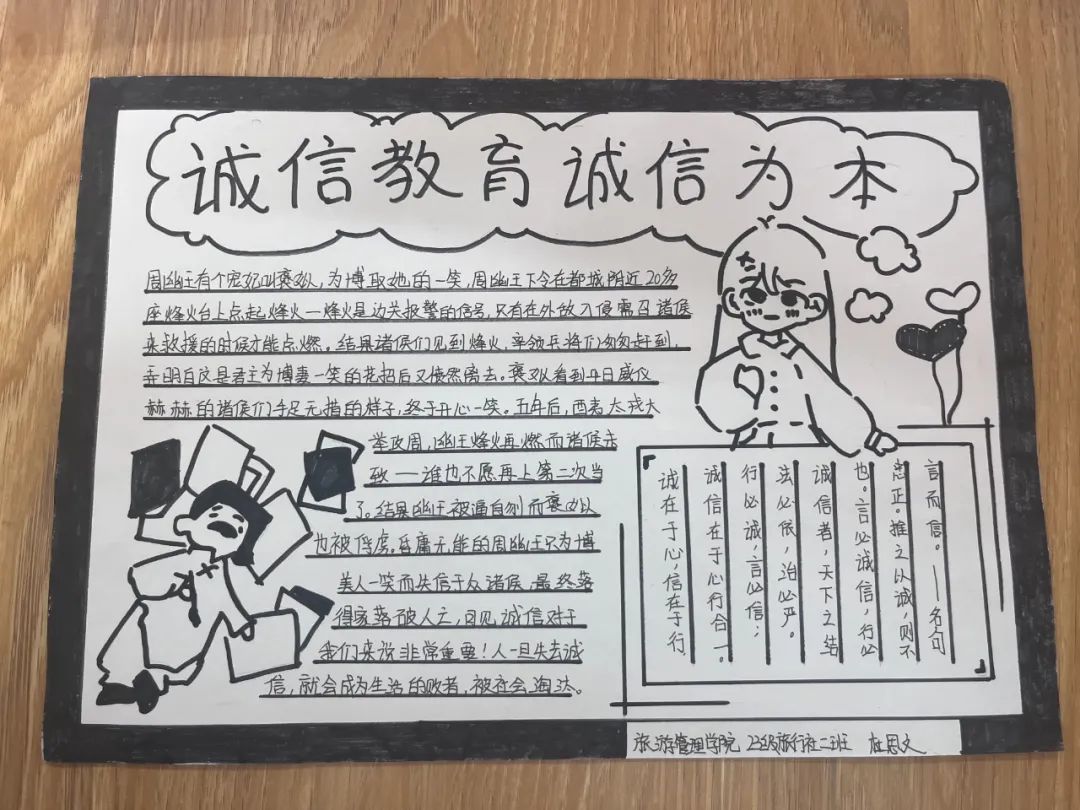 诚信教育 诚信为本
周幽王有个宠妃叫褒姒,为博取她的一笑,周幽王下令在都城附近20多
座烽火台上点起烽火—烽火是边关报警的信号,只有在外敌入侵需召诸侯
来救援的时候才能点燃。结果诸侯们见到烽火,率领兵将们匆匆赶到,
弄明白这是君主为博妻一笑的花招后又愤然离去。褒姒看到平日威仪
赫赫的诸侯们手足无措的样子,终于开心一笑。五年后,西夷太戎大
举攻周,幽王烽火再燃而诸侯未
致——谁也不愿再上第二次当
了。结果幽王被逼自刎而褒姒
也被俘虏。昏庸无能的周幽王只为博
美人一笑而失信于众诸侯,最终落
得家落破人亡,可见诚信对于
我们来说非常重要!人一旦失去诚
信,就会成为生活的败者,被社会淘汰。
诚在于心,信在于行
诚信在于心行合一。
行必诚,言必信;
法必依,治必严。
诚信者,天下之结
也。言必诚信,行必
忠正。推之以诚,则不
言而信。——名句
旅游管理学院 23级旅行社二班 杜思文